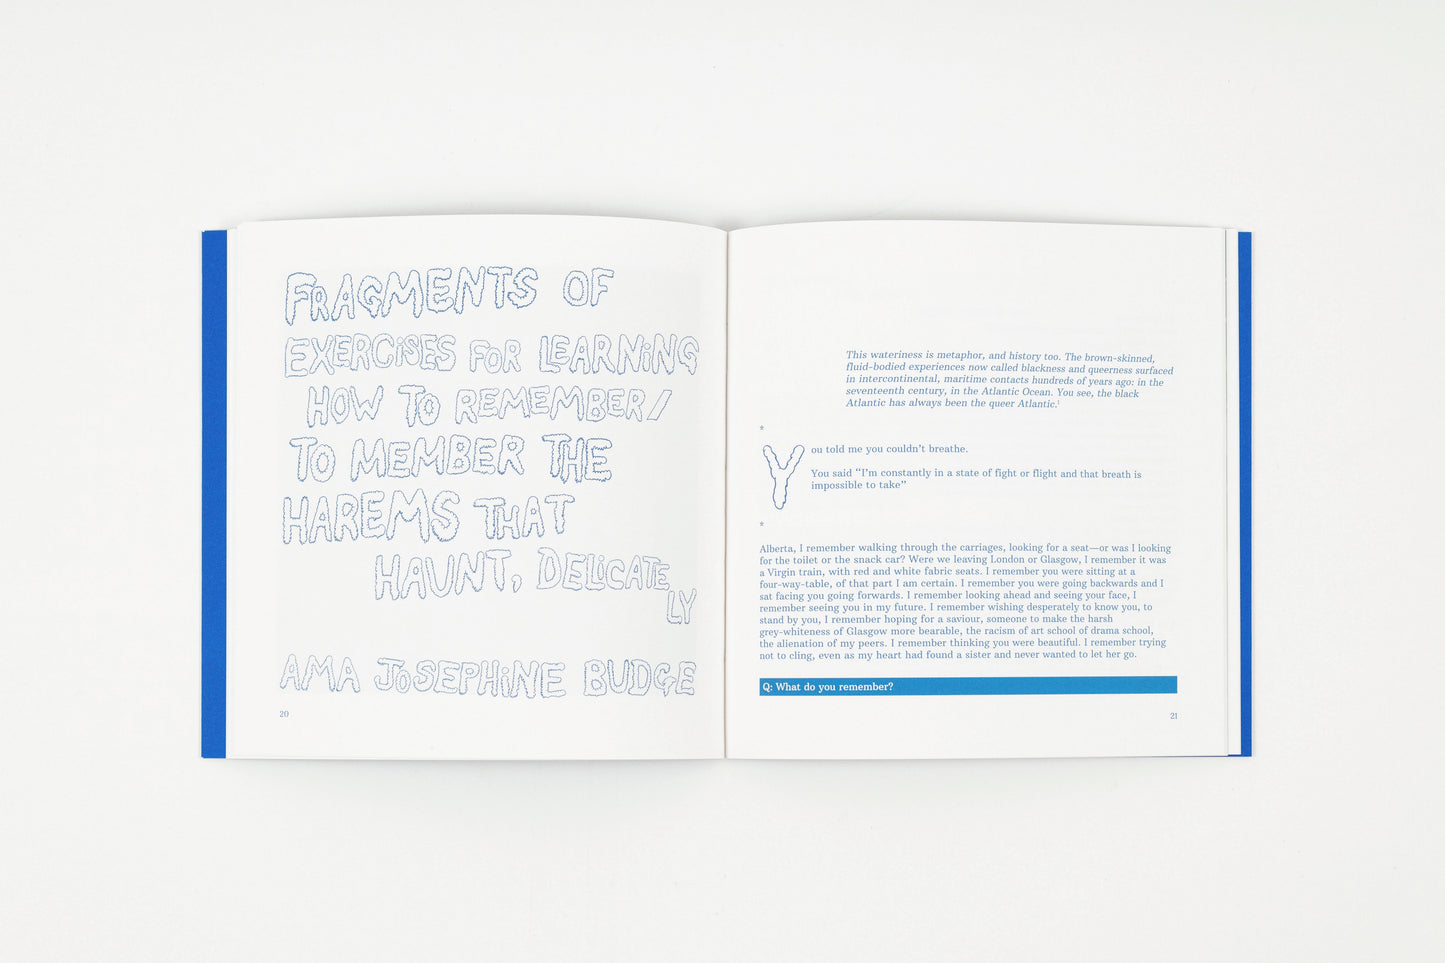 FRAGMENTS OF
EXERCiSES FOR LEARNiNG
HOW TO REMEMBER/
TO MEMBER THE
HAREMS THAT
HAUNT, DELiCATE
LY
AMA JOSEPHiNE BUDGE
20
This wateriness is metaphor, and history too. The brown-skinned,
fluid-bodied experiences now called blackness and queerness surfaced
in intercontinental, maritime contacts hundreds of years ago: in the
seventeenth century, in the Atlantic Ocean. You see, the black
Atlantic has always been the queer Atlantic.¹
*
You told me you couldn't breathe.
You said “I'm constantly in a state of fight or flight and that breath is
impossible to take”
*
Alberta, I remember walking through the carriages, looking for a seat—or was I looking
for the toilet or the snack car? Were we leaving London or Glasgow, I remember it was
a Virgin train, with red and white fabric seats. I remember you were sitting at a
four-way-table, of that part I am certain. I remember you were going backwards and I
sat facing you going forwards. I remember looking ahead and seeing your face, I
remember seeing you in my future. I remember wishing desperately to know you, to
stand by you, I remember hoping for a saviour, someone to make the harsh
grey-whiteness of Glasgow more bearable, the racism of art school of drama school,
the alienation of my peers. I remember thinking you were beautiful. I remember trying
not to cling, even as my heart had found a sister and never wanted to let her go.
Q: What do you remember?
21